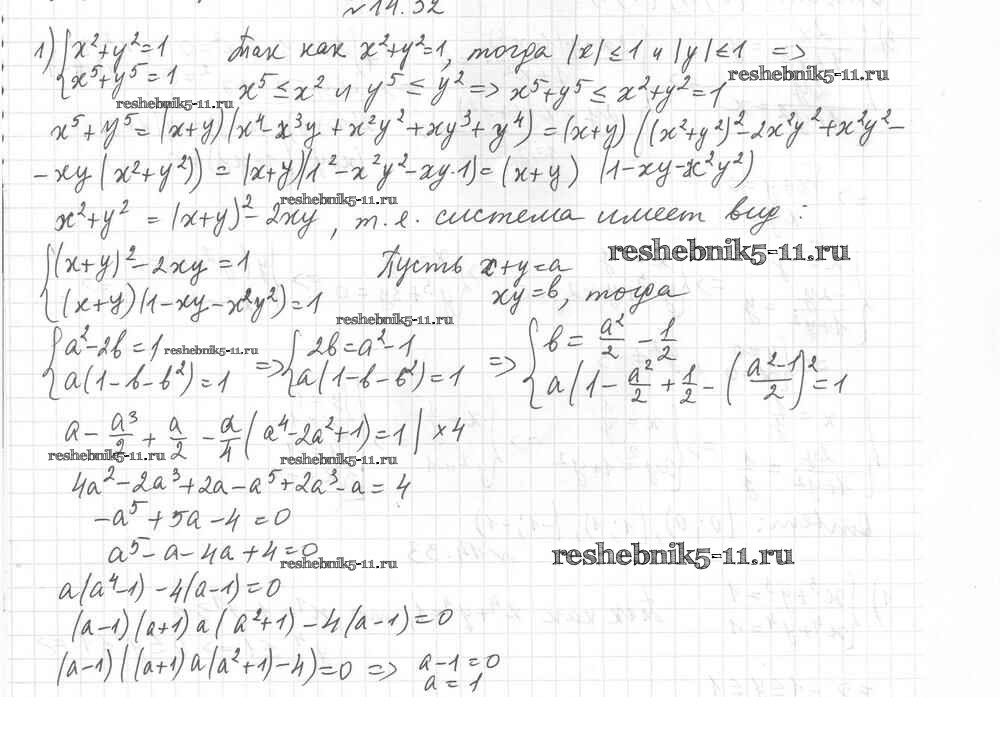 №14.32
1) { x²+y²=1 Так как x²+y²=1, тогда |x|≤1 и |y|≤1 =>
x⁵+y⁵=1 x⁵≤x² и y⁵≤y² => x⁵+y⁵≤x²+y²=1
reshebnik5-11.ru
reshebnik5-11.ru
x⁵+y⁵=(x+y)(x⁴-x³y+x²y²+xy³+y⁴)=(x+y)((x²+y²)²-2x²y²+x²y²-
-xy(x²+y²))=(x+y)(1²-x²y²-xy·1)=(x+y)(1-xy-x²y²)
reshebnik5-11.ru
x²+y²=(x+y)²-2xy, т.е. система имеет вид:
reshebnik5-11.ru
{ (x+y)²-2xy=1 Пусть x+y=a
(x+y)(1-xy-x²y²)=1 xy=в, тогда
reshebnik5-11.ru
{ a²-2в=1 => { 2в=a²-1 => { в=a²/2-1/2
a(1-в-в²)=1 a(1-в-в²)=1 a(1-a²/2+1/2-(a²-1/2)²=1
reshebnik5-11.ru
a-a³/2+a/2-a/4(a⁴-2a²+1)=1|×4
reshebnik5-11.ru
reshebnik5-11.ru
4a²-2a³+2a-a⁵+2a³-a=4
-a⁵+5a-4=0
a⁵-a-4a+4=0
reshebnik5-11.ru
reshebnik5-11.ru
a(a⁴-1)-4(a-1)=0
(a-1)(a+1)a(a²+1)-4(a-1)=0
(a-1)((a+1)a(a²+1)-4)=0 => a-1=0
a=1